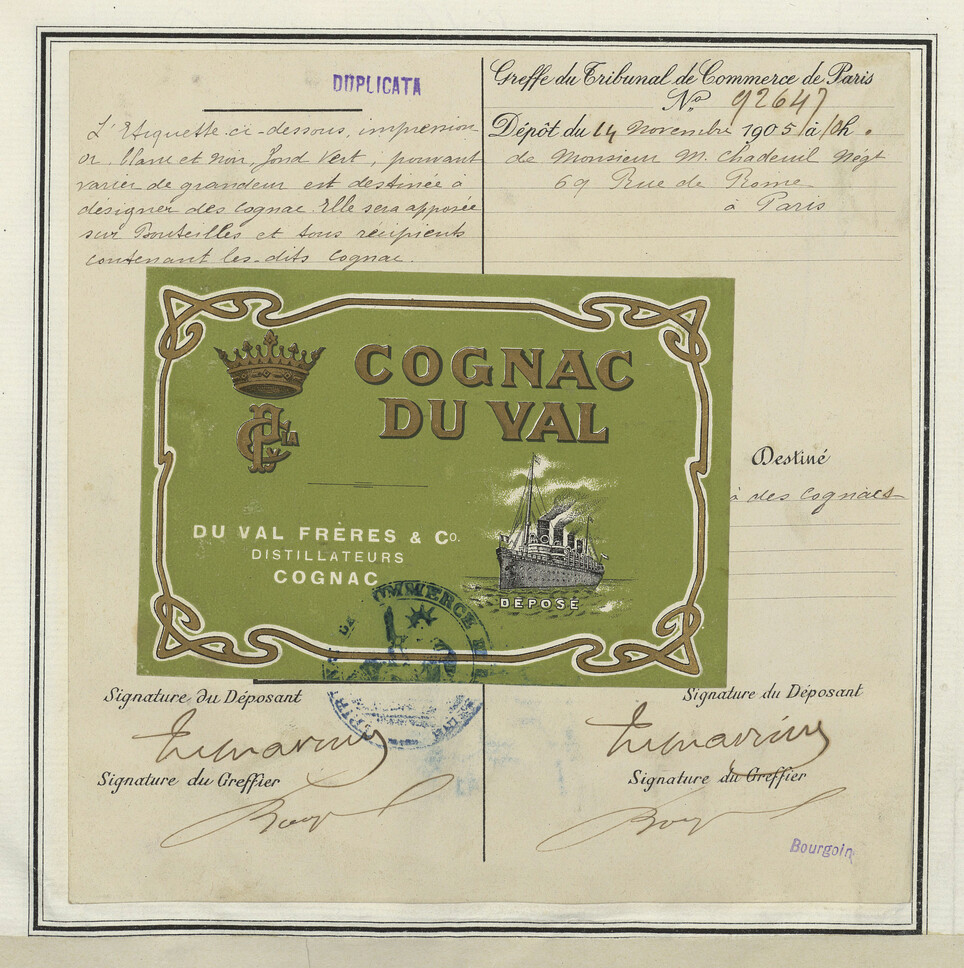 DUPLICATA
L'Etiquette ci-dessous, impression
or, blanc et noir, fond vert, pouvant
varier de grandeur est destinée à
désigner des Cognac. Elle sera apposée
sur Bouteilles et tous récipients
contenant les-dits Cognac.
Greffe du Tribunal de Commerce de Paris
No 92647
Dépôt du 14 novembre 1905 à 10h.
de Monsieur M. Chadeuil Négt
69 Rue de Rome
à Paris
COGNAC
DU VAL
DU VAL FRÈRES & Co.
DISTILLATEURS
COGNAC
DÉPOSÉ
Destiné
à des Cognacs
COMMERCE
Signature du Déposant
Signature du Greffier
Signature du Déposant
Signature du Greffier
Bourgoin